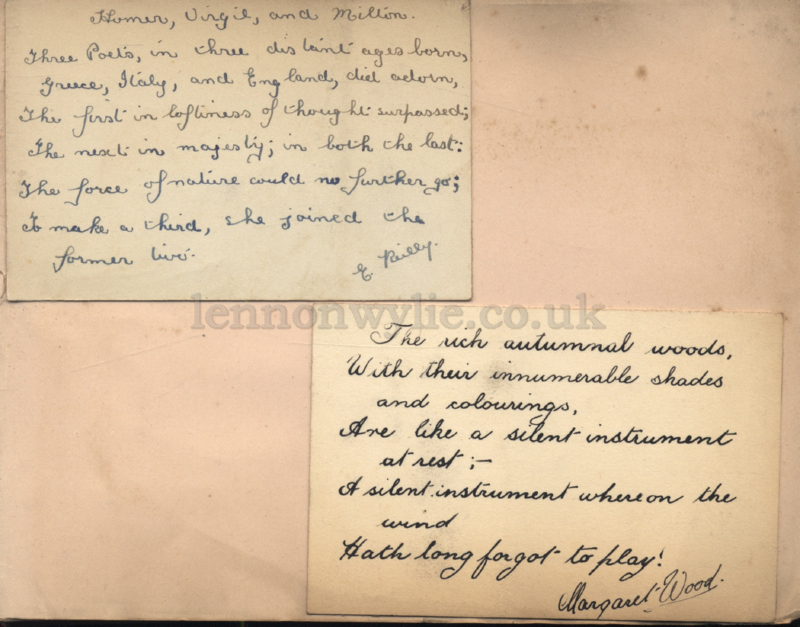 Homer, Virgil, and Milton.
Three Poets, in three distant ages born,
Greece, Italy, and England, did adorn,
The first in loftiness of thought surpassed;
The next in majesty; in both the last:
The force of nature could no further go;
To make a third, she joined the
former two.
E Reilly.
lennonwylie.co.uk
The rich autumnal woods,
With their innumerable shades
and colourings,
Are like a silent instrument
at rest;—
A silent instrument whereon the
wind
Hath long forgot to play!
Margaret Wood.